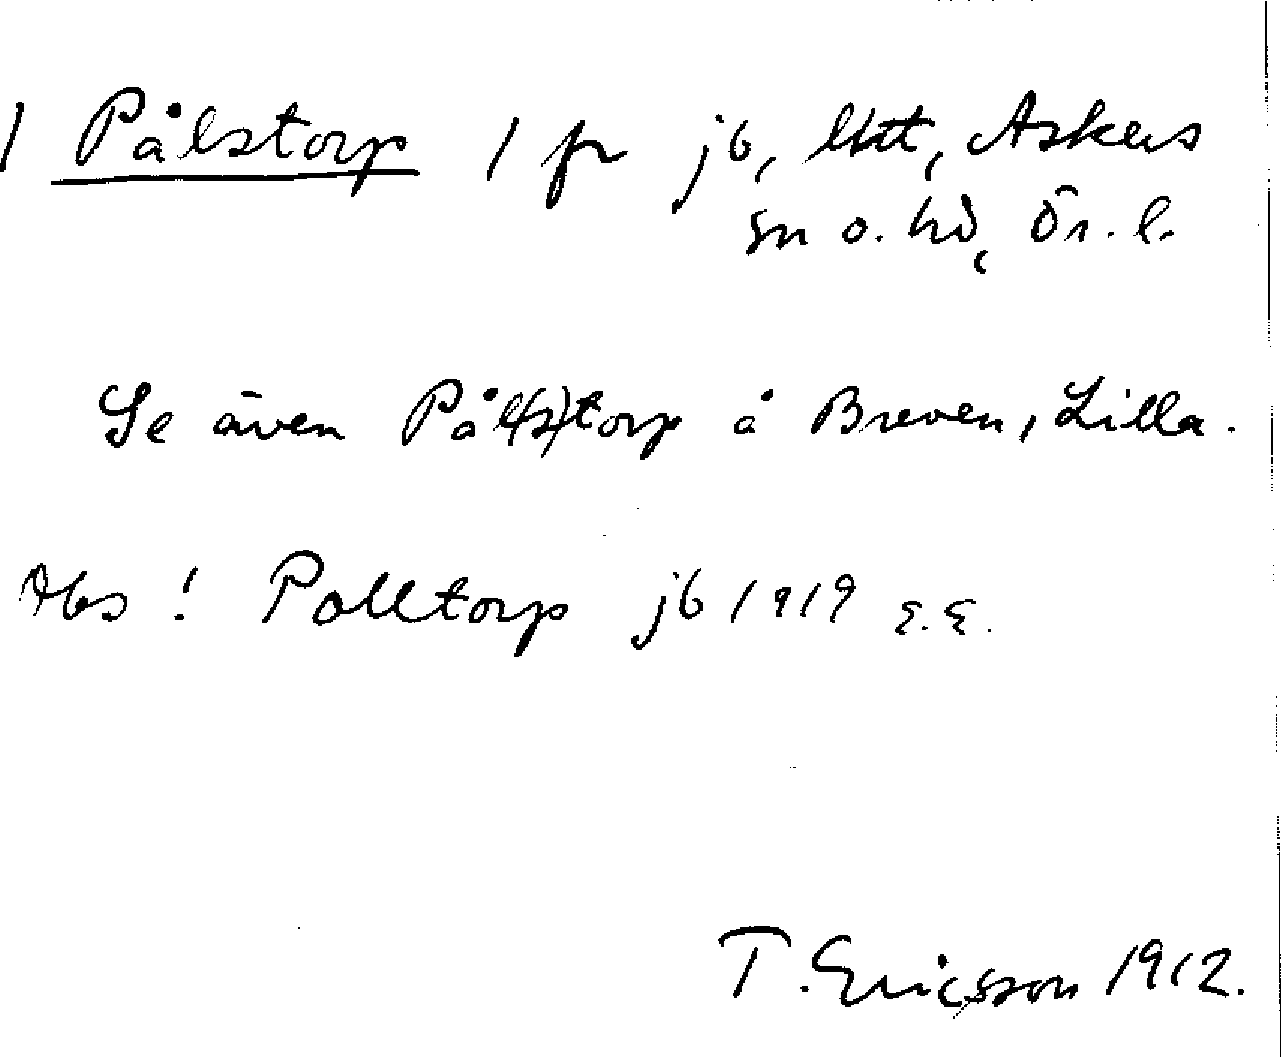 / Pålstorp / fr jb, Askers
sn o. hd, Ör. l.
Se även Pål(s)torp å Breven, Lilla.
Obs! Polltorp jb 1919 E.E.
T. Ericsson 1912.